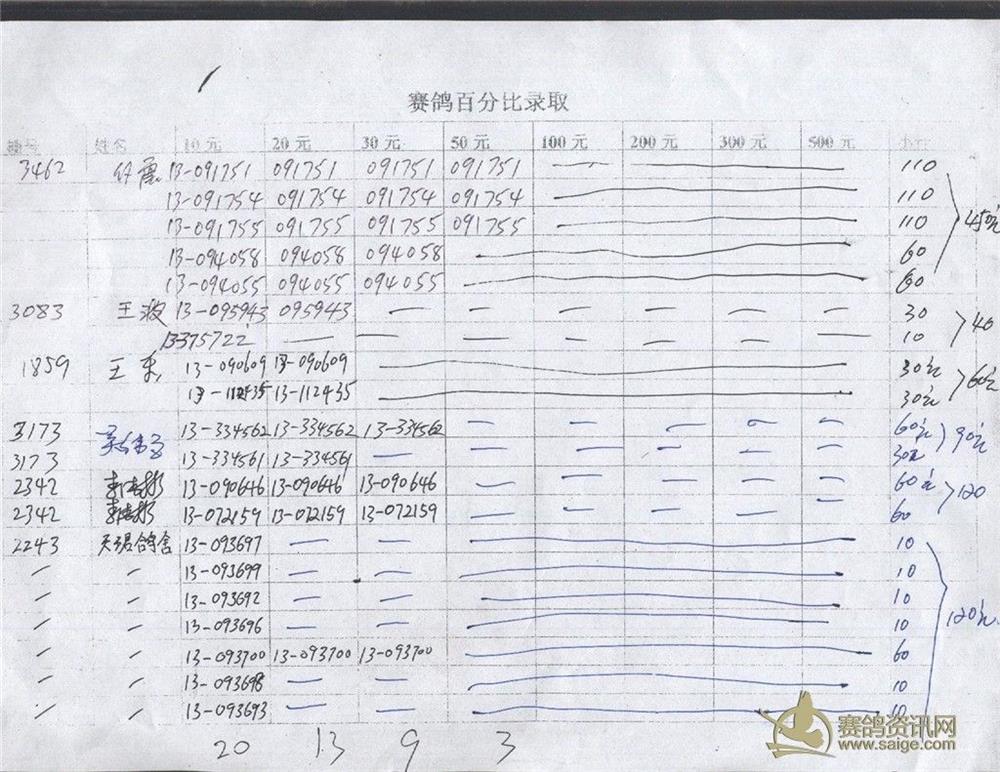 赛鸽百分比录取
棚号 姓名 10元 20元 30元 50元 100元 200元 300元 500元 小计
3462 13-091751 091751 091751 091751 — — 110
13-091754 091754 091754 091754 — 110
13-091755 091755 091755 091755 — 110 450元
13-094058 094058 094058 — 60
13-094055 094055 094055 — 60
3083 王波 13-095943 095943 — — — — — — 30
13-375722 — — — — — — — 10 40
1859 王东 13-090609 13-090609 — 30元
13-112435 13-112435 — 30元 60元
3173 13-334562 13-334562 13-334562 — — — — — 60元 90元
3173 13-334561 13-334561 — — — — — — 30元
2342 13-090646 13-090646 13-090646 — — — — — 60元 120
2342 13-072159 13-072159 13-072159 — — — — — 60
2243 天琪鸽舍 13-093697 — — — 10
〃 〃 13-093699 — — — 10
〃 〃 13-093692 — — — 10
〃 〃 13-093696 — — — 10 120元
〃 〃 13-093700 13-093700 13-093700 — 60
〃 〃 13-093698 — — — 10
〃 〃 13-093693 — — — 10
20 13 9 3
赛鸽资讯网
www.saige.com